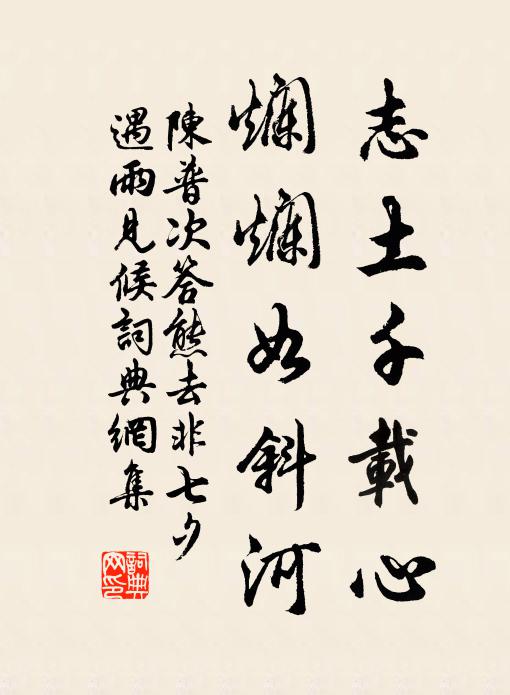 志土千載心
爛爛如斜河
陳普次答熊去非七夕
遇雨見候詞典網集
詞典網印